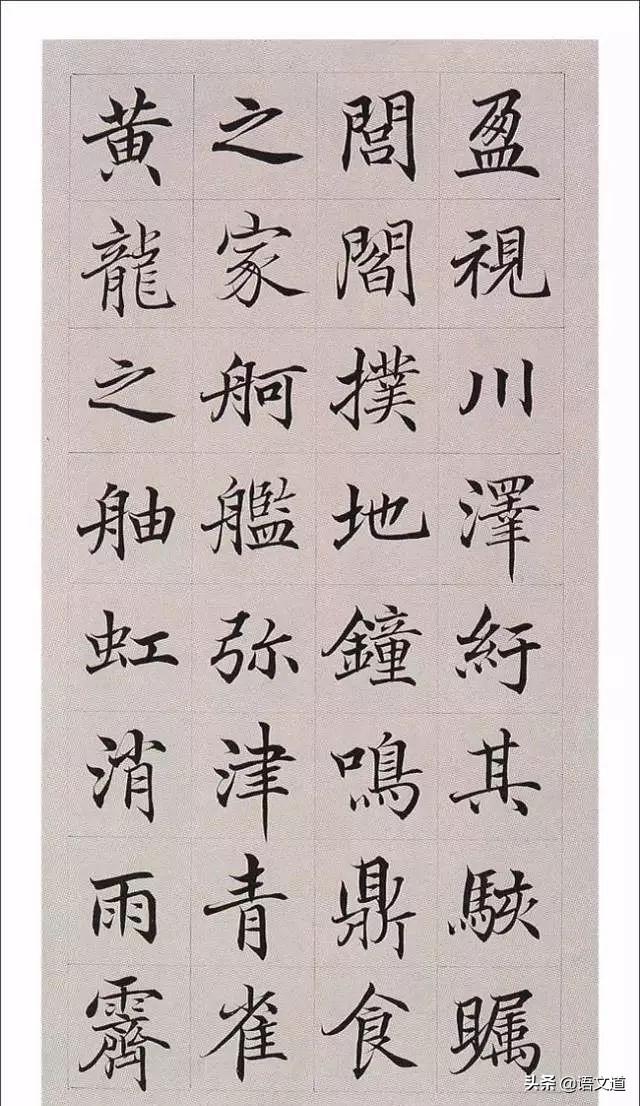 盈視川澤紆其駭矚
閭閻撲地鐘鳴鼎食
之家舸艦弥津青雀
黄龍之舳虹消雨霽
头条 @语文道